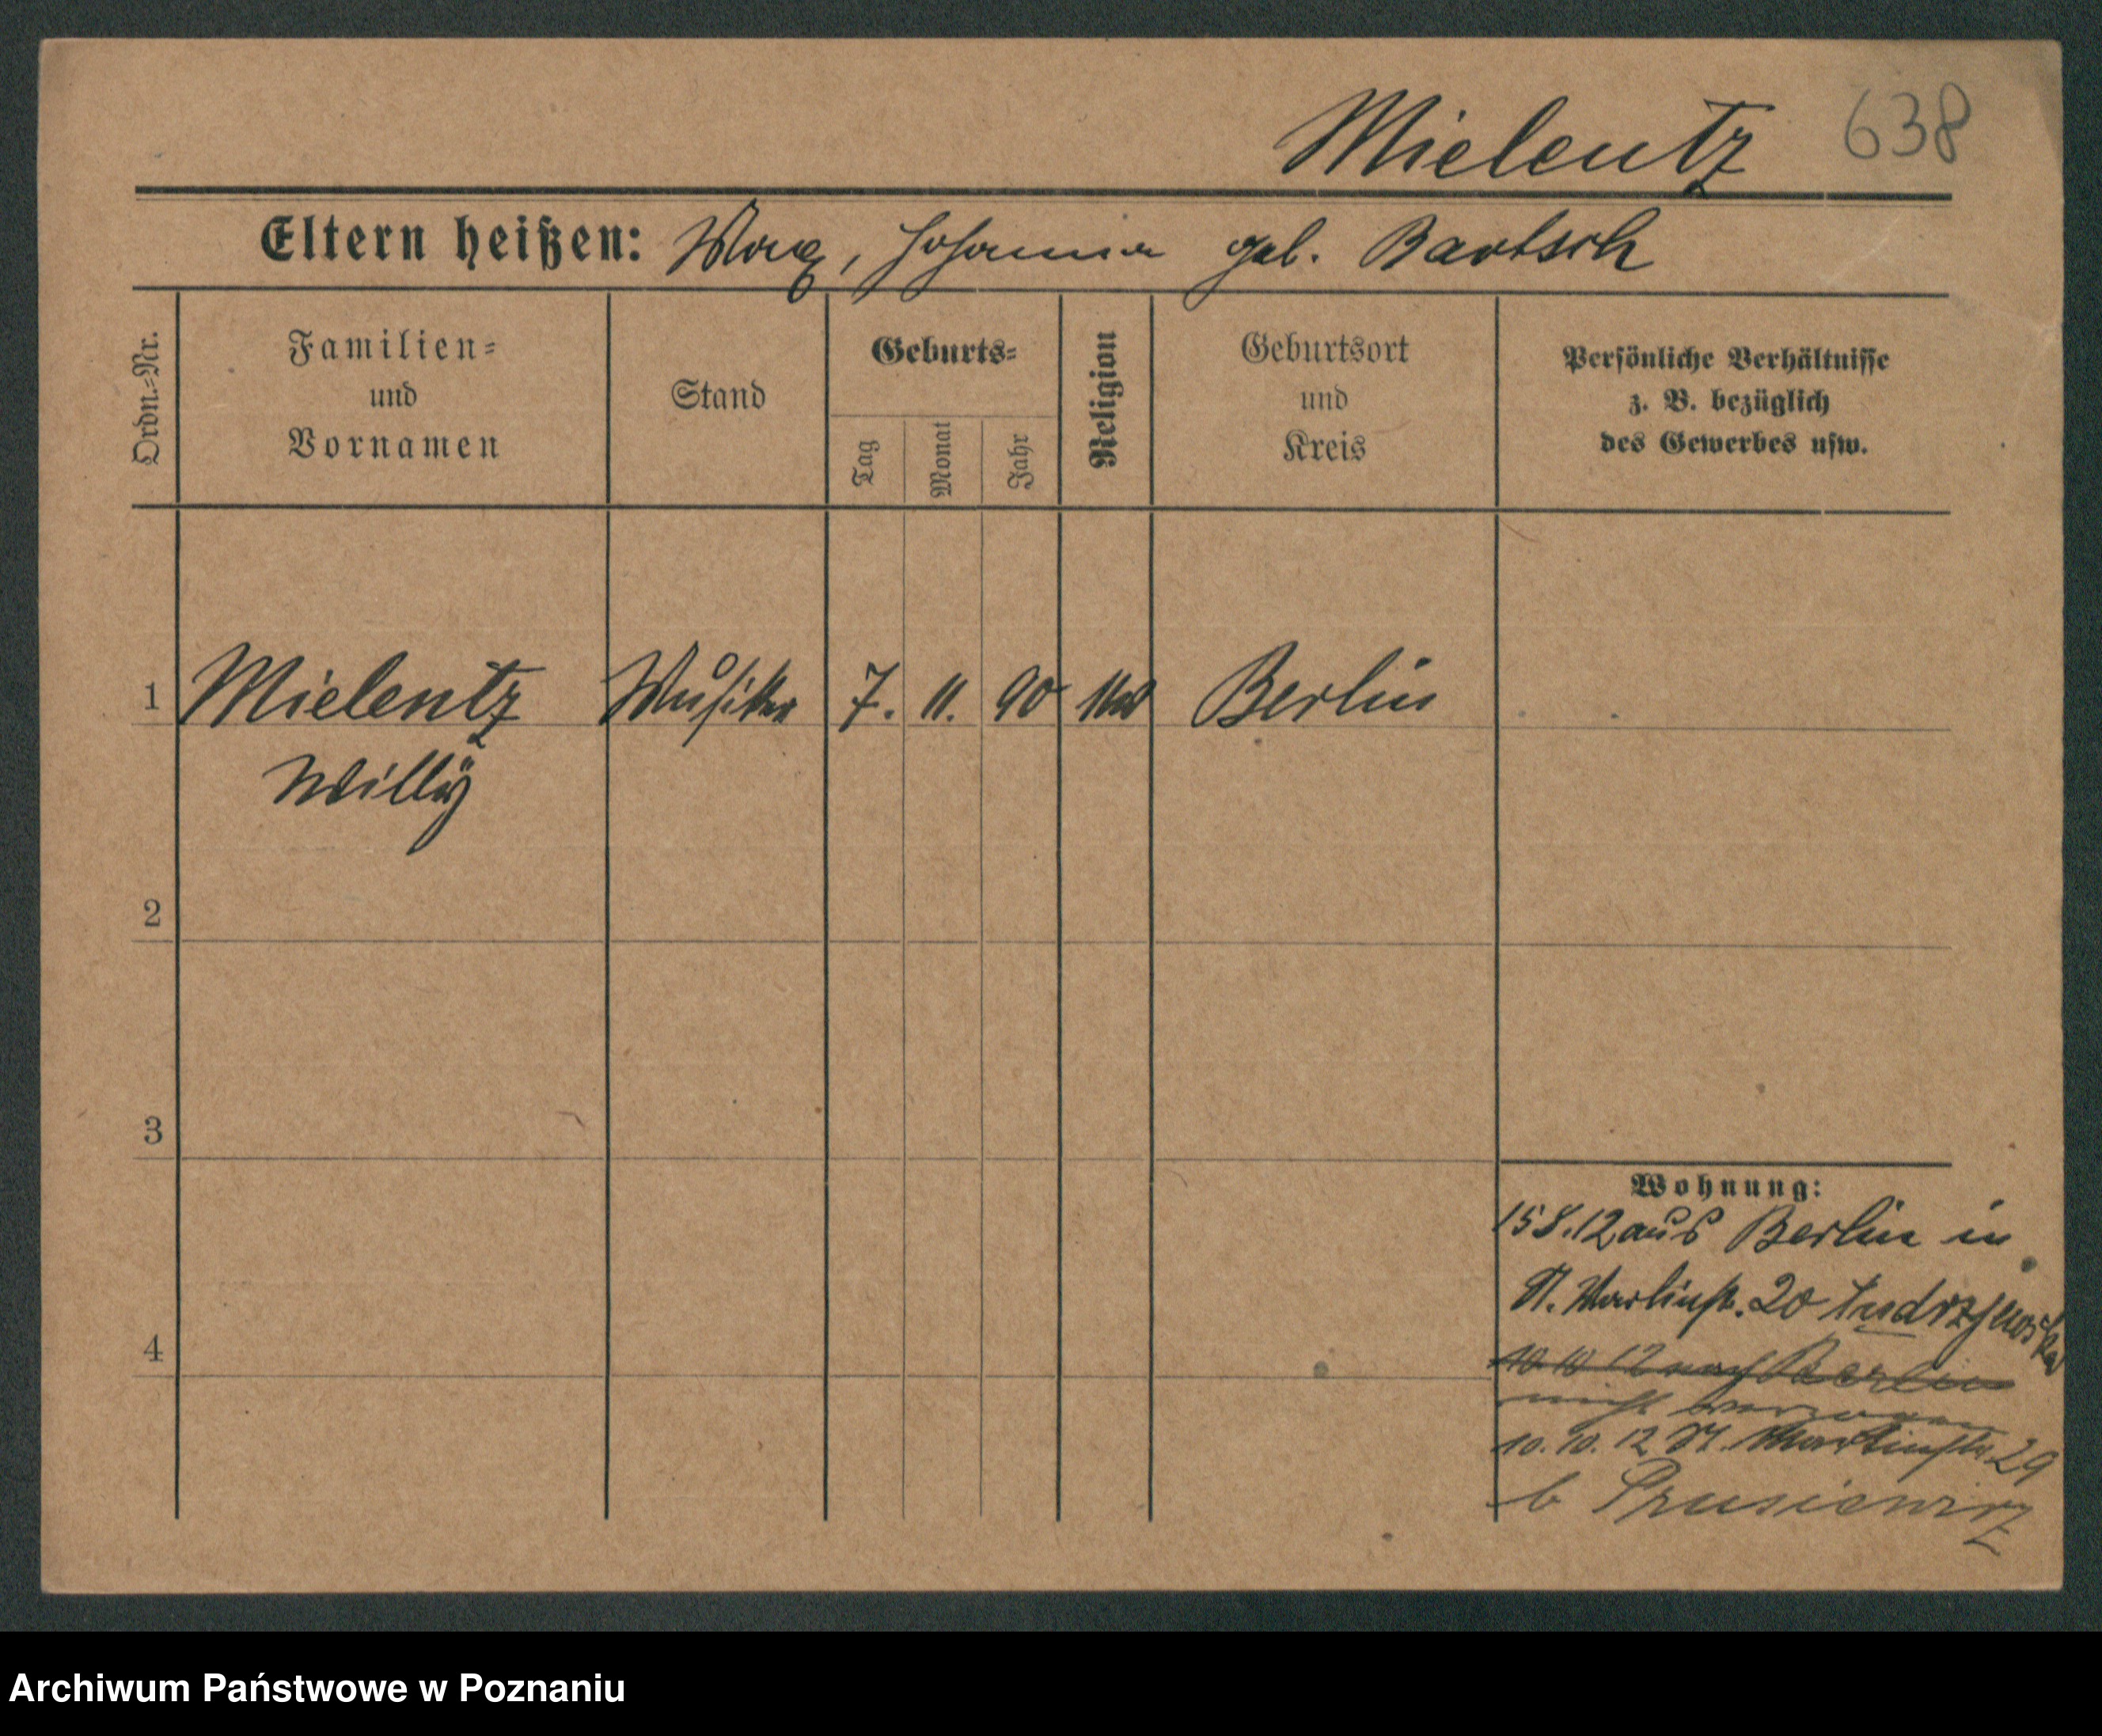 Mielentz 638
Eltern heißen: Max, Johanna geb. Bartsch
Ordn.-Nr.
Familien-
und
Vornamen
Stand
Geburts-
Tag
Monat
Jahr
Religion
Geburtsort
und
Kreis
Persönliche Verhältnisse
z. B. bezüglich
des Gewerbes usw.
1 Mielentz Musiker 7. 11. 90 Berlin
Willÿ
2
3
Wohnung:
15 8. 12 aus Berlin in
St. Martinstr. 20
4
10 10 12 nach Berlin
nicht verzogen
10. 10. 12 St. Martinstr. 29
b Prusiewicz
Archiwum Państwowe w Poznaniu